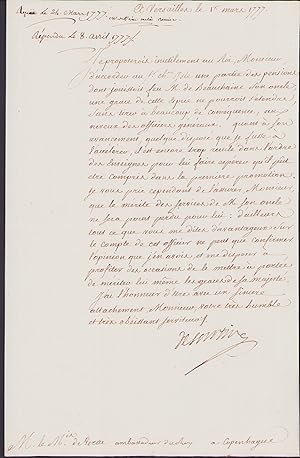 Reçue le 24 Mars 1777
A Versailles le 1er mars 1777.
Répondu le 8. avril 1777
Je proposerois inutilement au Roi, Monsieur
d'accorder au Ch. une partie des pensions
dont jouissoit feu M. de Beauchaine Son oncle
une grace de cette espece ne pourroit s'etendre
Sans tirer a beaucoup de consequence, au
neveux des officiers generaux. quant à Son
avancement, quelque disposé que je sois à
l'accelerer, il est encore trop reculé dans l'ordre
des Enseignes pour lui faire esperer qu'il put
etre compris dans la premiere promotion.
je vous prie cependant de l'assurer, Monsieur,
que le merite des services de M. Son oncle
ne sera point perdu pour lui: d'ailleurs
tout ce que vous me dites d'avantageux Sur
le compte de cet officier ne peut que confirmer
l'opinion que j'en avois, et me disposer a
profiter des occasions de le mettre a portée
de meriter lui même les graces de Sa majesté.
J'ai l'honneur d'être avec un Sincere
attachement Monsieur, votre très humble
et très obeissant Serviteur
De Sartine
M. le Mis de ambassadeur du Roy a Copenhague